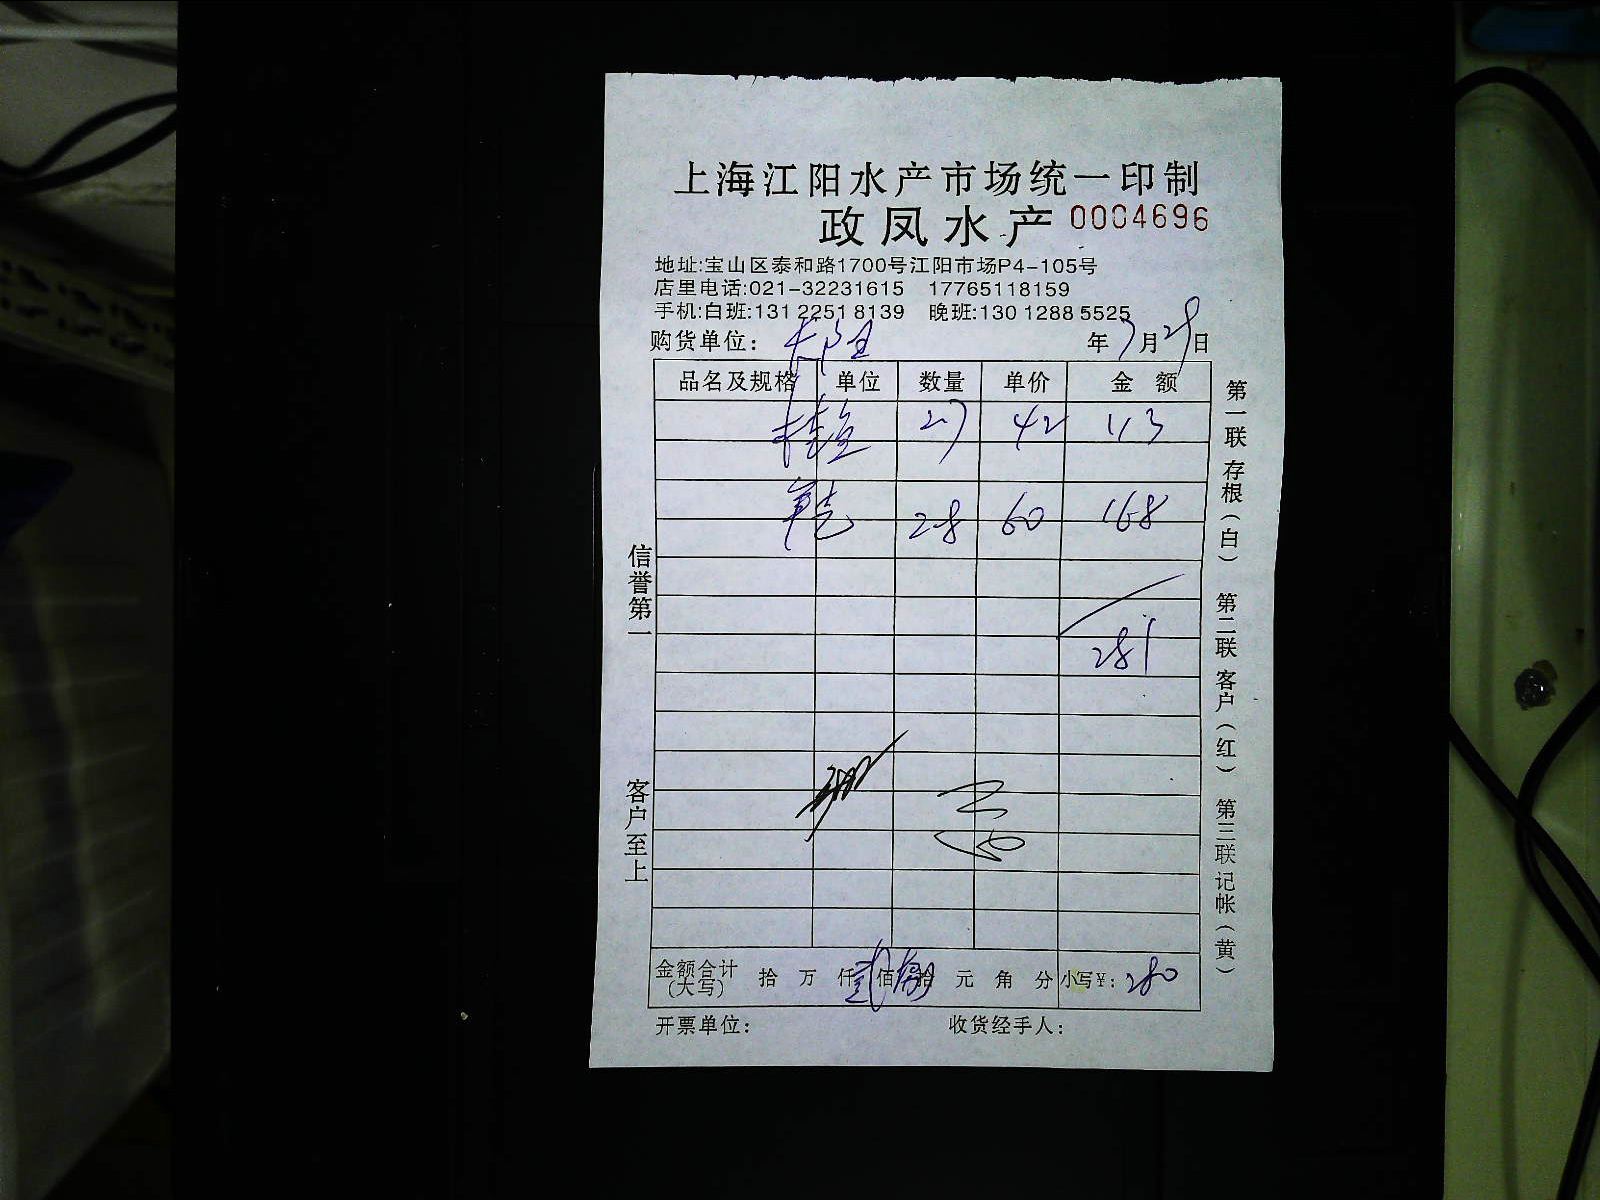 上海江阳水产市场统一印制
政凤水产 0004696
地址:宝山区泰和路1700号江阳市场P4-105号
店里电话:021-32231615 17765118159
手机:白班:131 2251 8139 晚班:130 1288 5525
购货单位: 年7月29日
品名及规格 单位 数量 单价 金额
桂鱼 27 42 113
28 60 168
281
金额合计(大写) 拾 万 仟 贰佰捌拾 元 角 分 小写¥: 280
开票单位: 收货经手人:
信誉第一 客户至上
第一联存根(白) 第二联客户(红) 第三联记帐(黄)